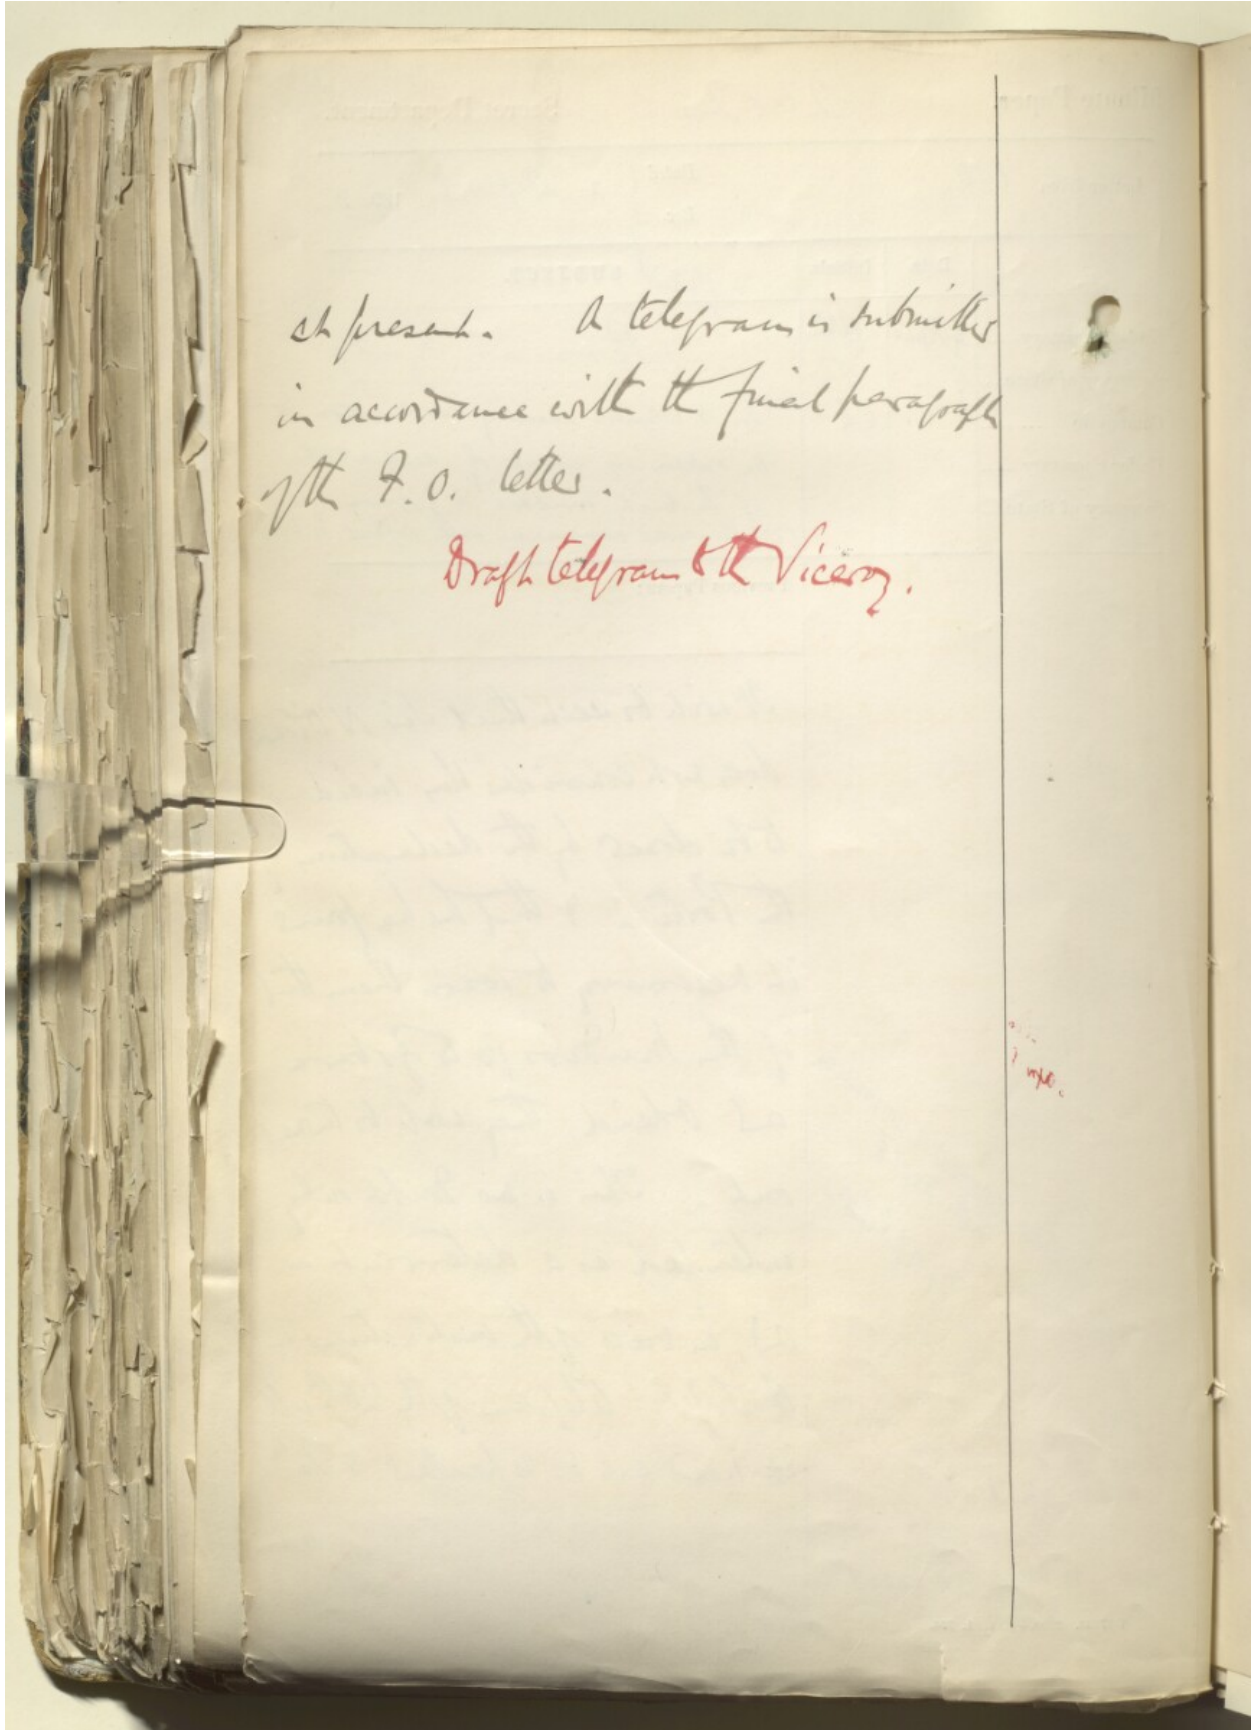 at present. A telegram is submitted
in accordance with the final paragraph
of the F.O. letter.
Draft telegram to the Viceroy.